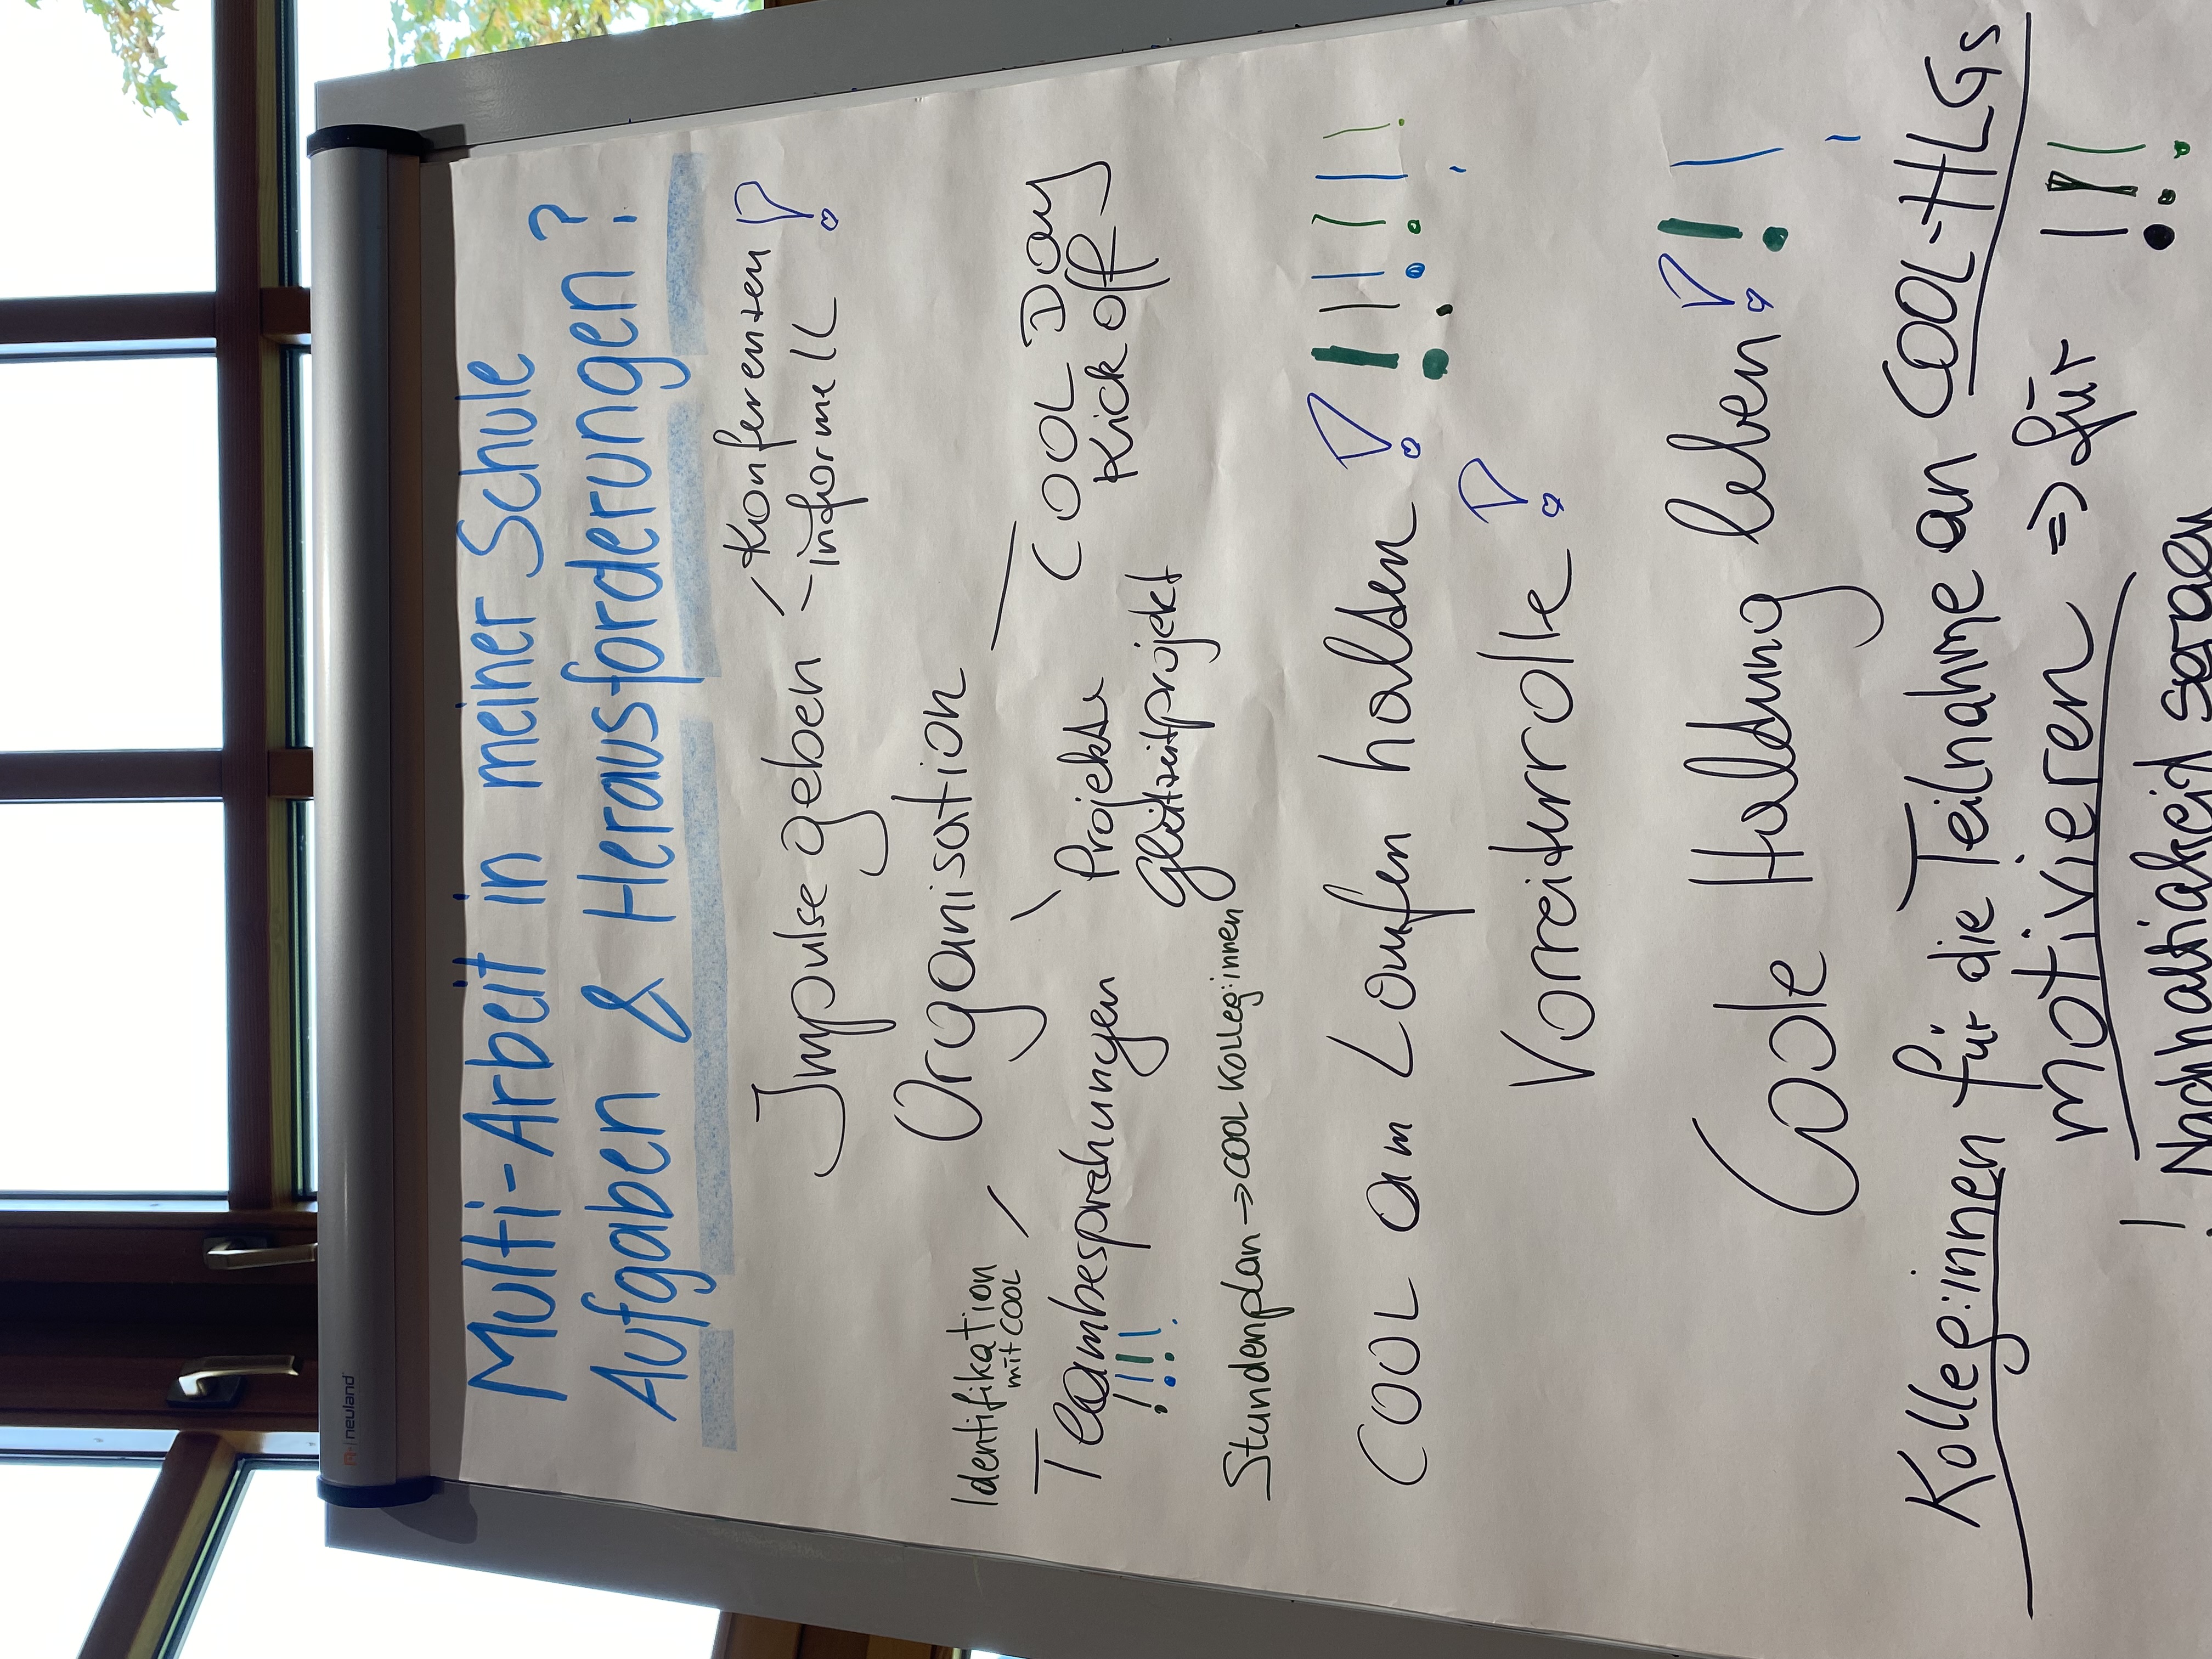 neuland
Multi-Arbeit in meiner Schule
Aufgaben & Herausforderungen?
Impulse geben - Konferenzen!
- informell
Organisation
Identifikation
mit COOL
Teambesprechungen
!!!!
Projekte
Gleitzeitprojekt
COOL Day
Kick off
Stundenplan => COOL Kolleg:innen
COOL am Laufen halten! !!!!!!
Vorreiterrolle!
Coole Haltung leben! !!
Kolleg:innen für die Teilnahme an COOL-HLGs
motivieren => für !!!
! Nachhaltigkeit sorgen